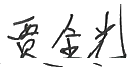 贾金利